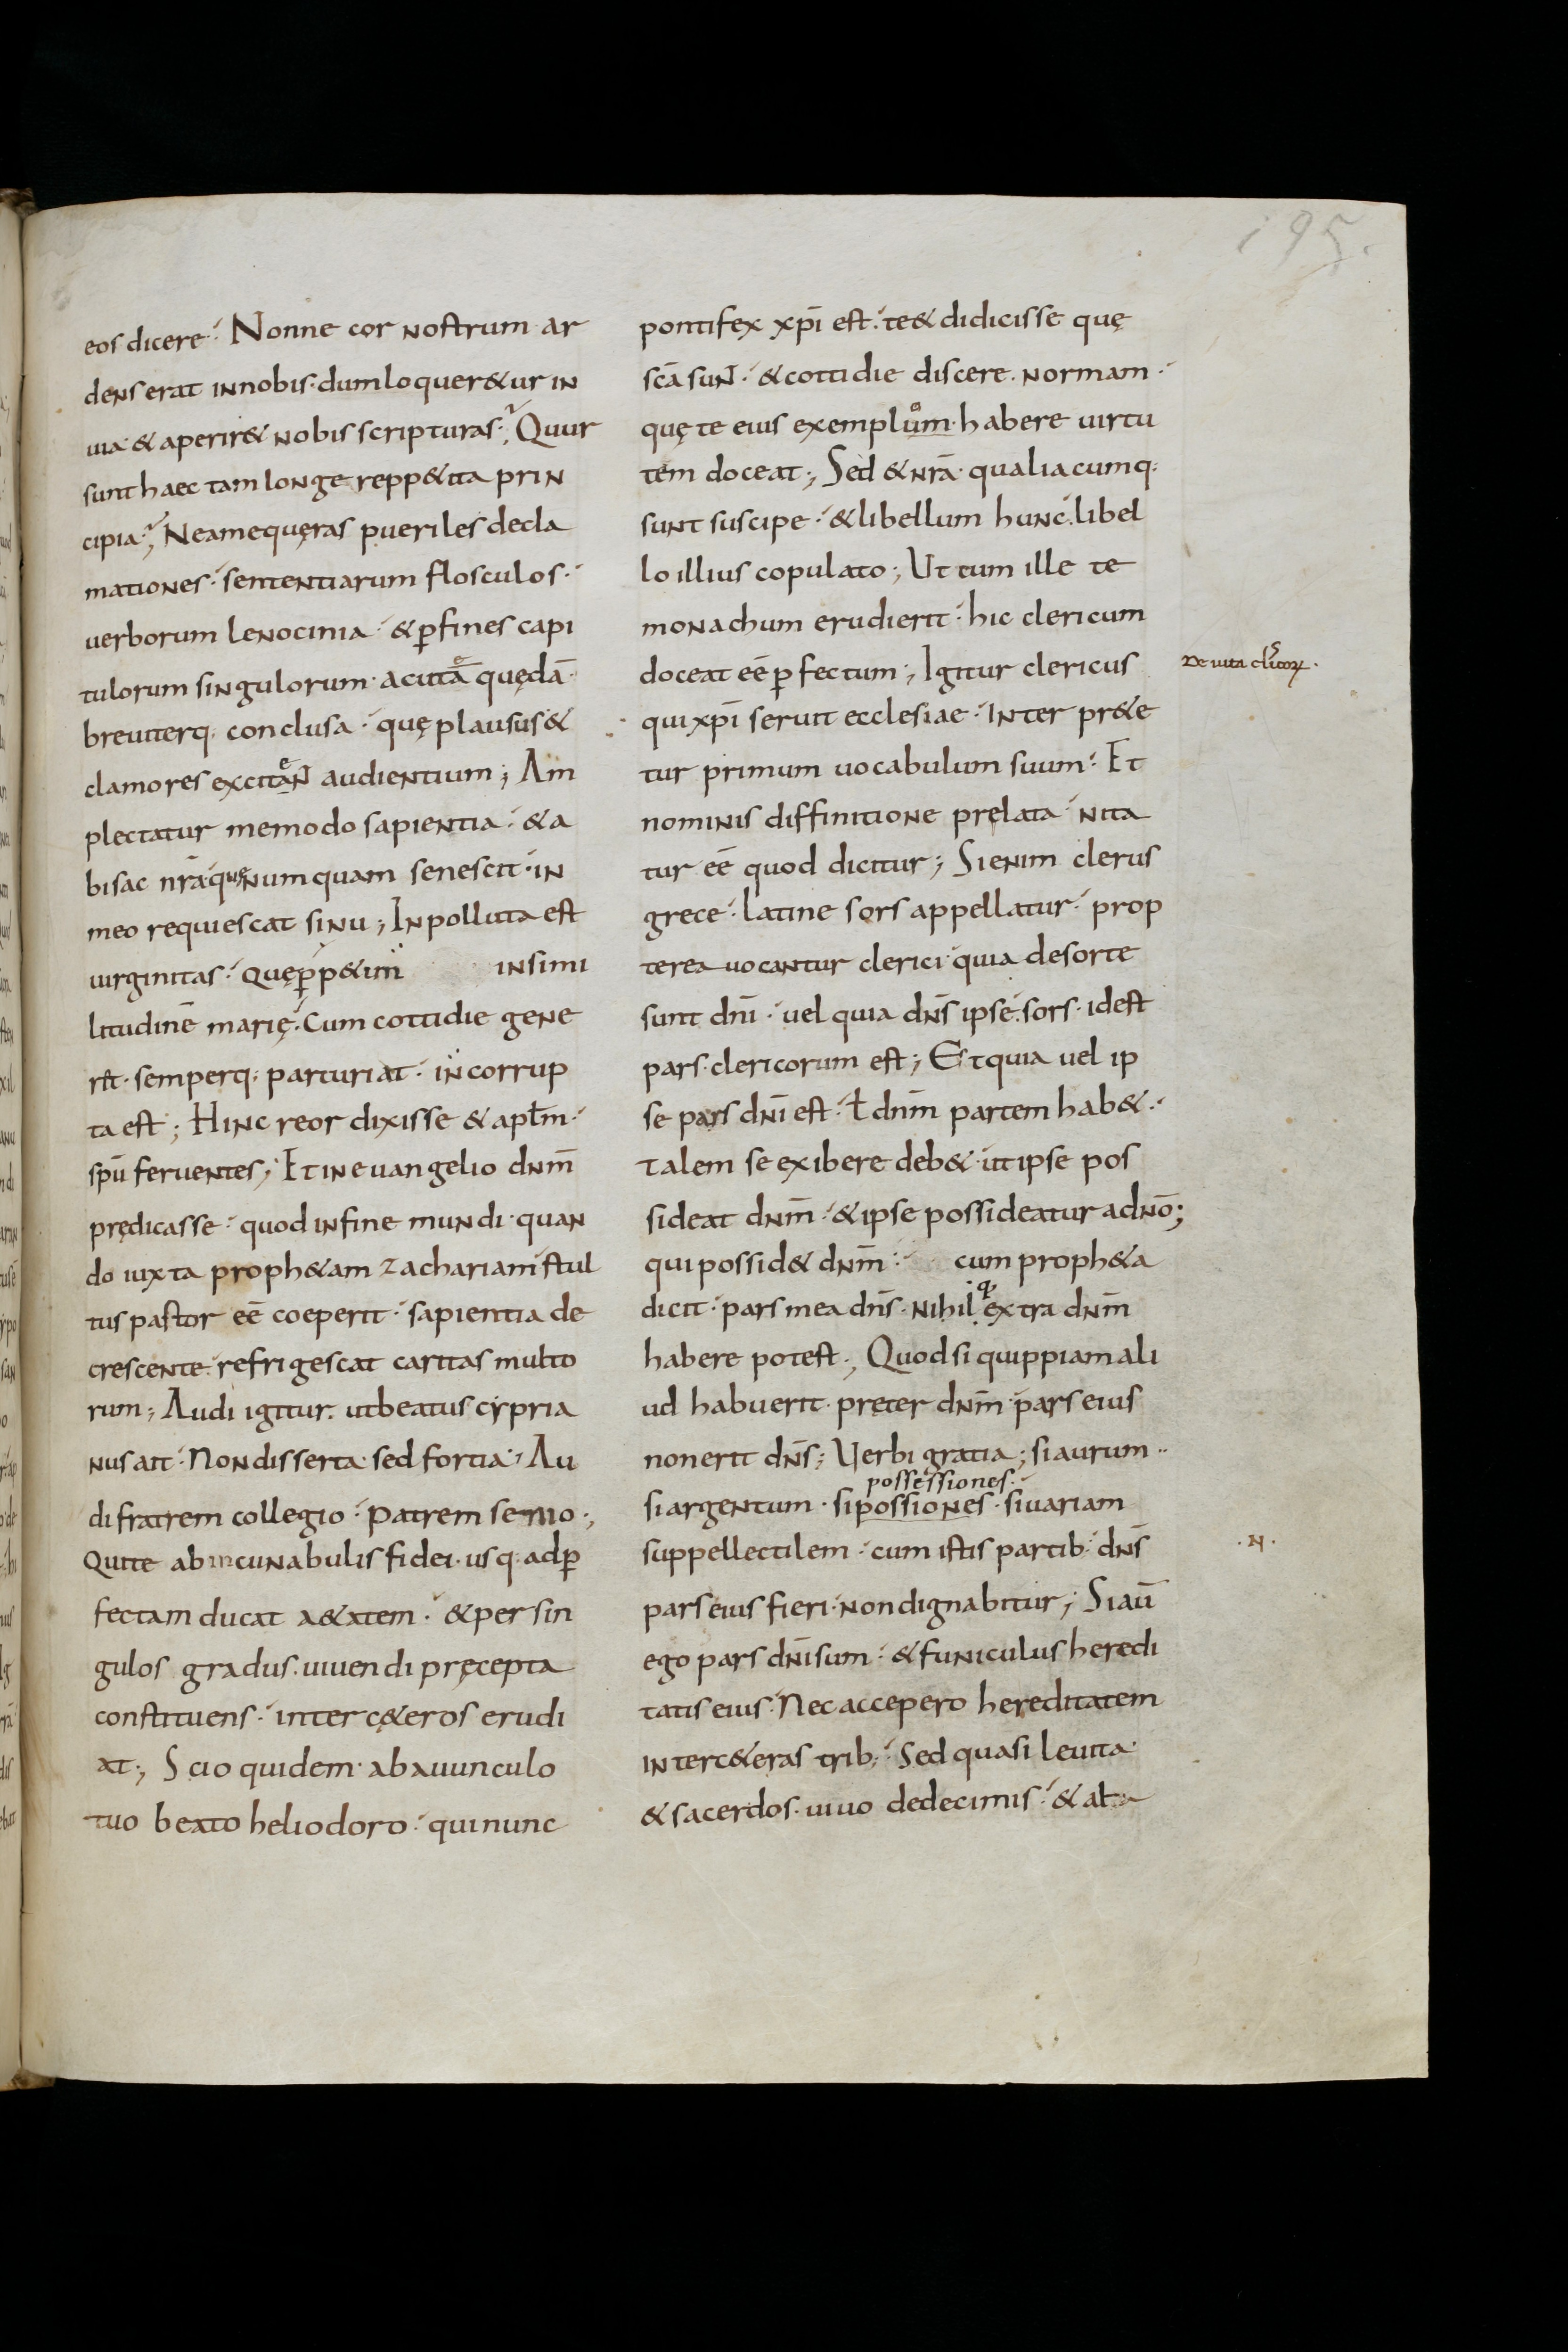 195.
eos dicere· Nonne cor nostrum ar
dens erat innobis· dumloquer&ur in
uia· & aperir& nobis scripturas·; Quur
sunt haec tam longe repp&ita prin
cipia·; Neamequęras pueriles decla
mationes· sententiarum flosculos·
uerborum lenocinia· & ꝑfines capi
tulorum singulorum· acuta quędā·
breuiterq· conclusa· quę plausus &
clamores excitaɴt audientium; Am
plectatur memodo sapientia· & a
bisac nr̄a· que numquam senescit· in
meo requiescat sinu; Inpolluta est
uirginitas· quęꝑp&im insimi
litudinē marię· Cum cottidie gene
rēt· semperq· parturiat· incorrup
ta est; Hinc reor dixisse & apłm·
sp̄u feruentes; Et ineuangelio dn̄m
prędicasse· quod infine mundi· quan
do iuxta proph&am zachariam stul
tus pastor eē coeperit· sapientia de
crescente· refrigescat caritas multo
rum; Audi igitur· utbeatus cypria
nus ait· Nondisserta sed fortia; Au
di fratrem collegio· Patrem sermo·,
Quite abincunabulis fidei· usq· adꝑ
fectam ducat a&atem· & per sin
gulos gradus· uiuendi pręcepta
constituens· inter c&eros erudi
at·, Scio quidem· abauunculo
tuo beato heliodoro· quinunc
pontifex xp̄i est· te & didicisse quę
sc̄a suɴt· & cottidie discere· normam·
quę te eius exemplum· habere uirtu
tem doceat·, Sed & nr̄a· qualiacumq·
sunt suscipe· & libellum hunc· libel
lo illius copulato; Ut tum ille te
monachum erudierit· hic clericum
doceat eē ꝑfectum; Igitur clericus
De uita cl̄icoꝝ·
qui xp̄i seruit ecclesiae· Inter pr&e
tur primum uocabulum suum· Et
nominis diffinitione pręlata· nita
tur eē quod dicitur; Si enim clerus
grece· latine sors appellatur· prop
terea uocantur clerici· quia desorte
sunt dn̄i· uel quia dn̄s ipse· sors· idest
pars· clericorum est; Et quia uel ip
se pars dn̄i est· ł dn̄m partem hab&·
talem se exibere deb&· ut ipse pos
sideat dn̄m· & ipse possideatur adnō;
qui possid& dn̄m· cum proph&a
dicit· pars mea dn̄s· nihil q· extra dn̄m
habere potest·, Quodsi quippiam ali
ud habuerit· pręter dn̄m· pars eius
nonerit dn̄s; Uerbi gratia; si aurum··
possessiones·
si argentum· si possiones· si uariam
suppellectilem· cum istis partib· dn̄s
·N·
pars eius fieri· non dignabitur; Si aū
ego pars dn̄i sum· & funiculus heredi
tatis eius· Nec accepero hereditatem
inter c&eras trib·· Sed quasi leuita
& sacerdos· uiuo dedecimis· & alta